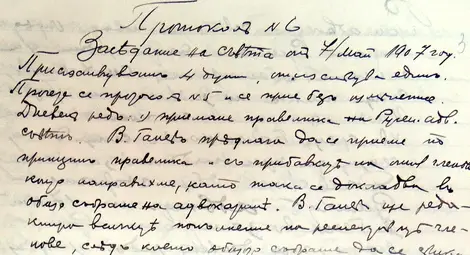 Протоколъ № 6
Заседание на съвѣта от 7/май 1907 год.
Присѫствуватъ 4 души, отсѫствува единъ.
Прочете се протоколъ № 5 и се прие безъ изменение.
Дневенъ редъ: 1) приемане правилника на Русен. адв.
съвѣтъ. В. Ганевъ прѣдлага да се приеме по
принципъ правилника и съ прибавките на ония членове
които направихме, като така се докладва въ
общо събрание на адвокатите. В. Ганевъ ще реда-
ктира всички попълнения на респектив. чле-
нове, следъ което общото събрание да се свика